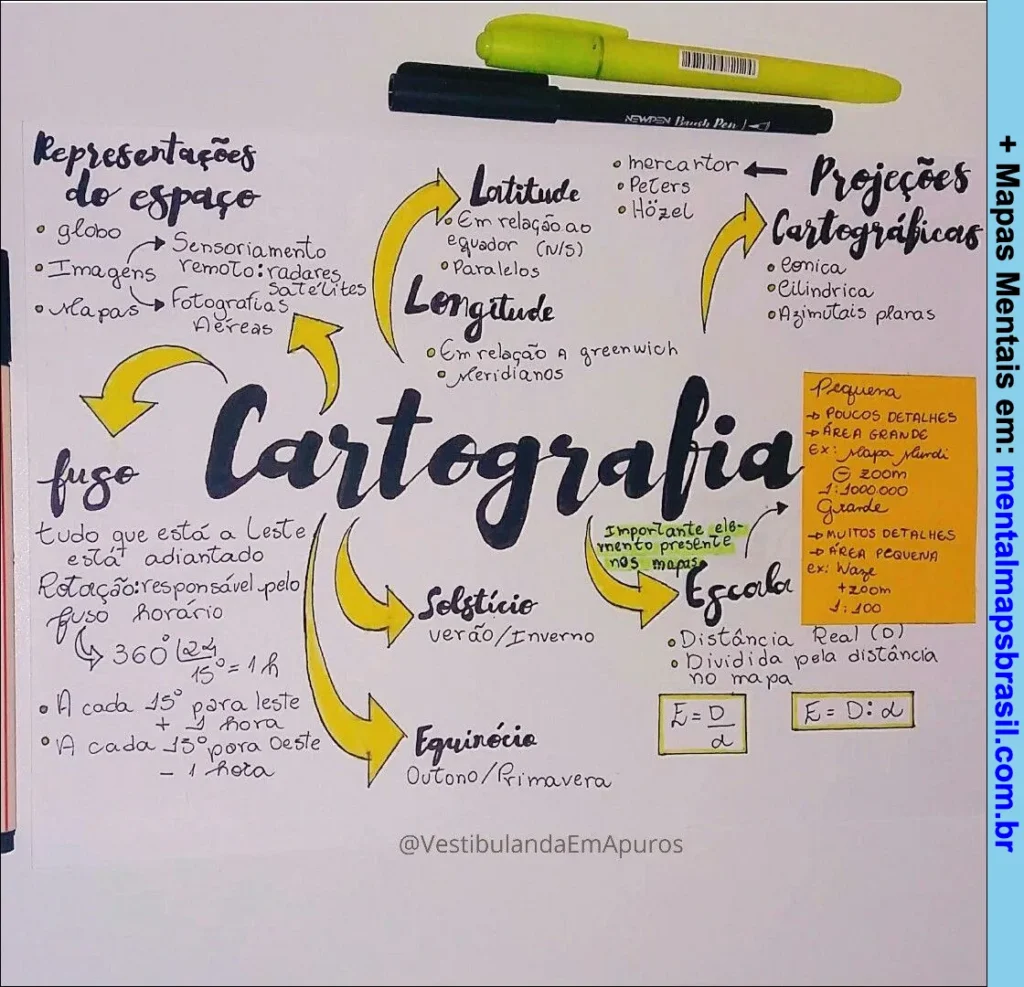 NEWPEN Brush Pen
Representações
do espaço
• globo
• Imagens
• Mapas
Sensoriamento
remoto: radares
satélites
Fotografias
Aéreas
Latitude
• Em relação ao
equador (N/S)
• Paralelos
Longitude
• Em relação A greenwich
• Meridianos
• mercantor
• Peters
• Hözel
Projeções
Cartográficas
• Conica
• Cilindrica
• Azimutais planas
Cartografia
Pequena
→ POUCOS DETALHES
→ ÁREA GRANDE
Ex: Mapa Mundi
⊖ zoom
1:1000.000
Grande
→ MUITOS DETALHES
→ ÁREA PEQUENA
ex: Waze
+zoom
1:100
fuso
tudo que está a Leste
está adiantado
Rotação: responsável pelo
fuso horário
360° 24
15° = 1 h
• A cada 15° para leste
+ 1 hora
• A cada 15° para Oeste
- 1 hora
Importante ele-
mento presente
nos mapas
Escala
• Distância Real (D)
• Dividida pela distância
no mapa
E = D
d
E = D: d
Solstício
verão/Inverno
Equinócio
Outono/Primavera
@VestibulandaEmApuros
+ Mapas Mentais em: mentalmapsbrasil.com.br